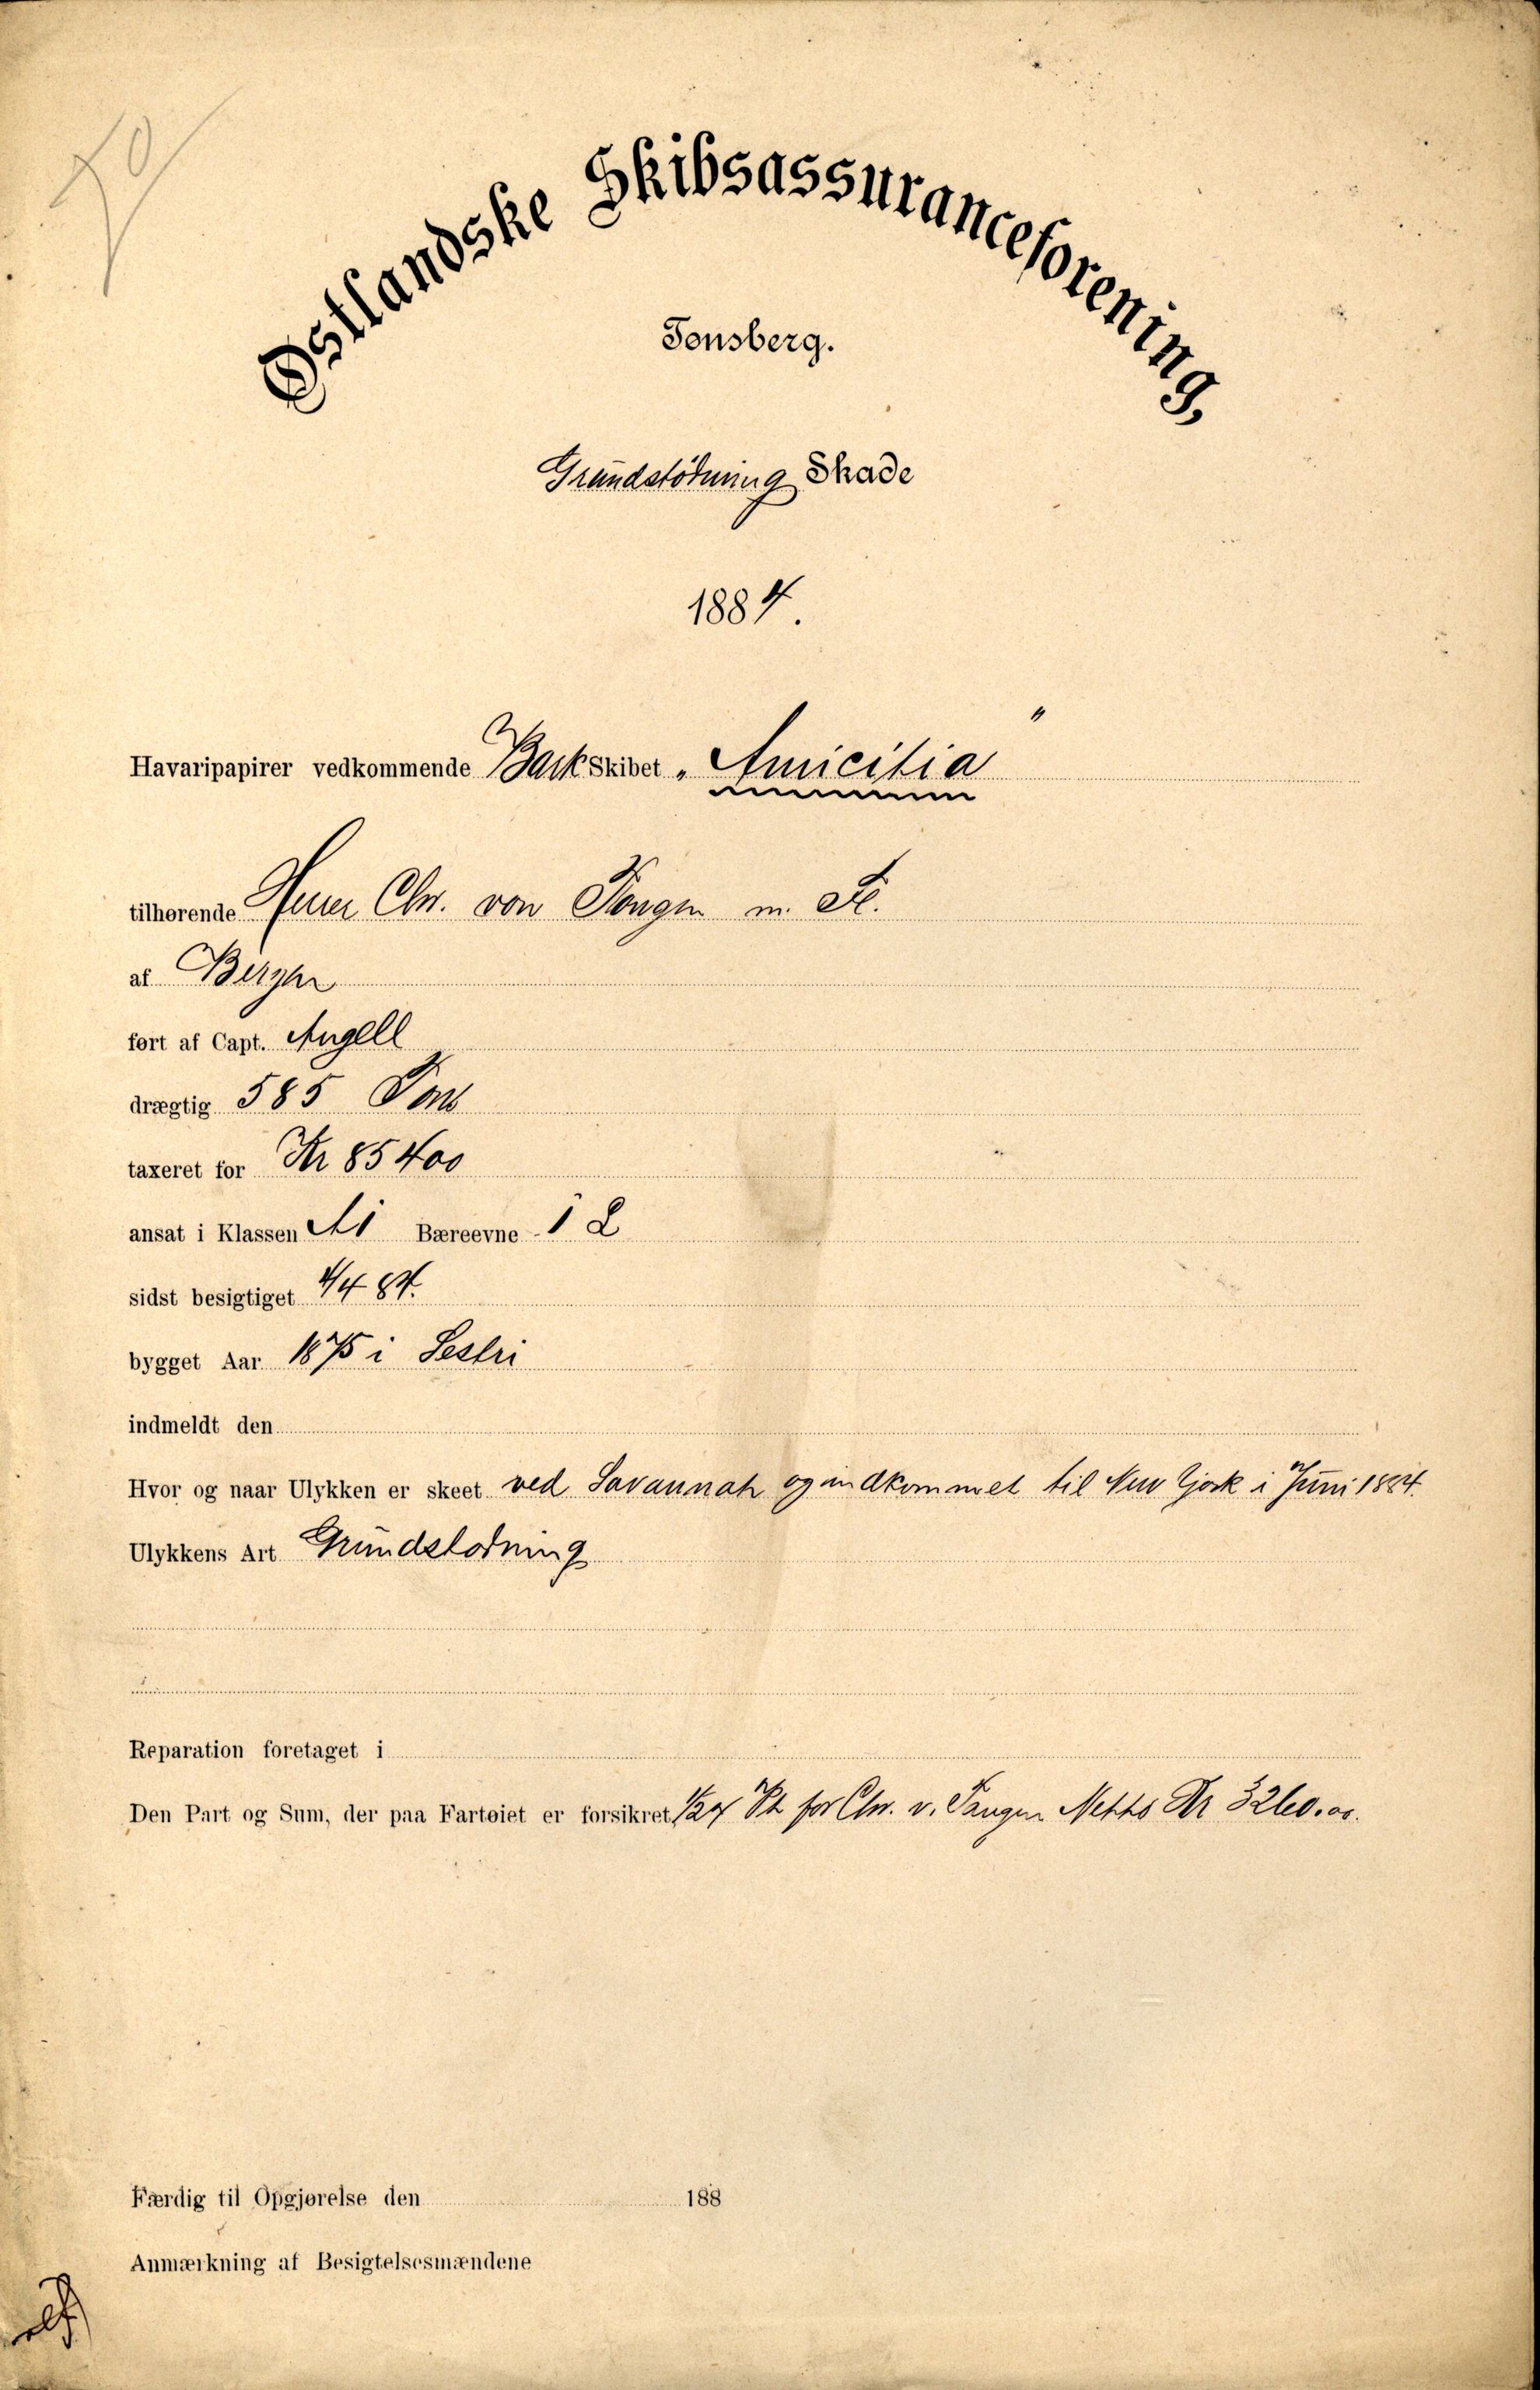 Østlandske Skibsassuranceforening,
Tønsberg.
Grundstödning Skade
1884.
Havaripapirer vedkommende Bark Skibet „Amicitia"
tilhørende Herrer Chr. von Tangen m. Fl.
af Bergen
ført af Capt. Angell
drægtig 585 Tons
taxeret for Kr 85400
ansat i Klassen A1 Bæreevne 1 L
sidst besigtiget 4/4 84.
bygget Aar 1875 i Sestri
indmeldt den
Hvor og naar Ulykken er skeet ved Savannah og indkommet til New Yjork i Juni 1884.
Ulykkens Art Grundstødning
Reparation foretaget i
Den Part og Sum, der paa Fartøiet er forsikret, 1/24 Pt for Chr. v. Tangen Netto Kr 3260.00.
Færdig til Opgjørelse den 188
Anmærkning af Besigtelsesmændene